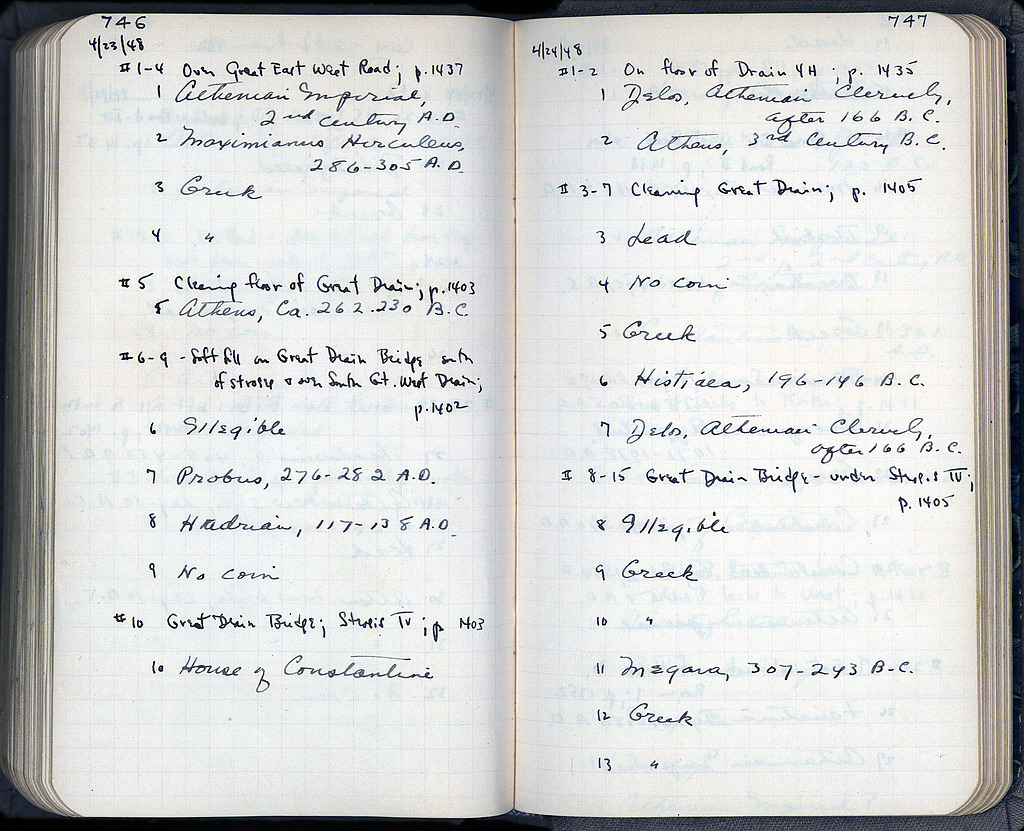 746
4/23/48
#1-4 Over Great East West Road; p. 1437
1 Athenian Imperial,
2nd century A.D.
2 Maximianus Herculeus,
286-305 A.D.
3 Greek
4 "
#5 Clearing floor of Great Drain; p. 1403
5 Athens, Ca. 262-230 B.C.
#6-9 - Soft fill on Great Drain Bridge south
of strosis & over South Gt. West Drain;
p. 1402
6 Illegible
7 Probus, 276-282 A.D.
8 Hadrian, 117-138 A.D.
9 No coin
#10 Great Drain Bridge; Strosis IV; p 1403
10 House of Constantine
747
4/24/48
#1-2 On floor of Drain 4H; p. 1435
1 Delos, Athenian Cleruchy,
after 166 B.C.
2 Athens, 3rd Century B.C.
#3-7 Cleaning Great Drain; p. 1405
3 Lead
4 No coin
5 Greek
6 Histiaea, 196-146 B.C.
7 Delos, Athenian Cleruchy,
after 166 B.C.
# 8-15 Great Drain Bridge - under Strosis IV;
p. 1405
8 Illegible
9 Greek
10 "
11 Megara, 307-243 B.C.
12 Greek
13 "